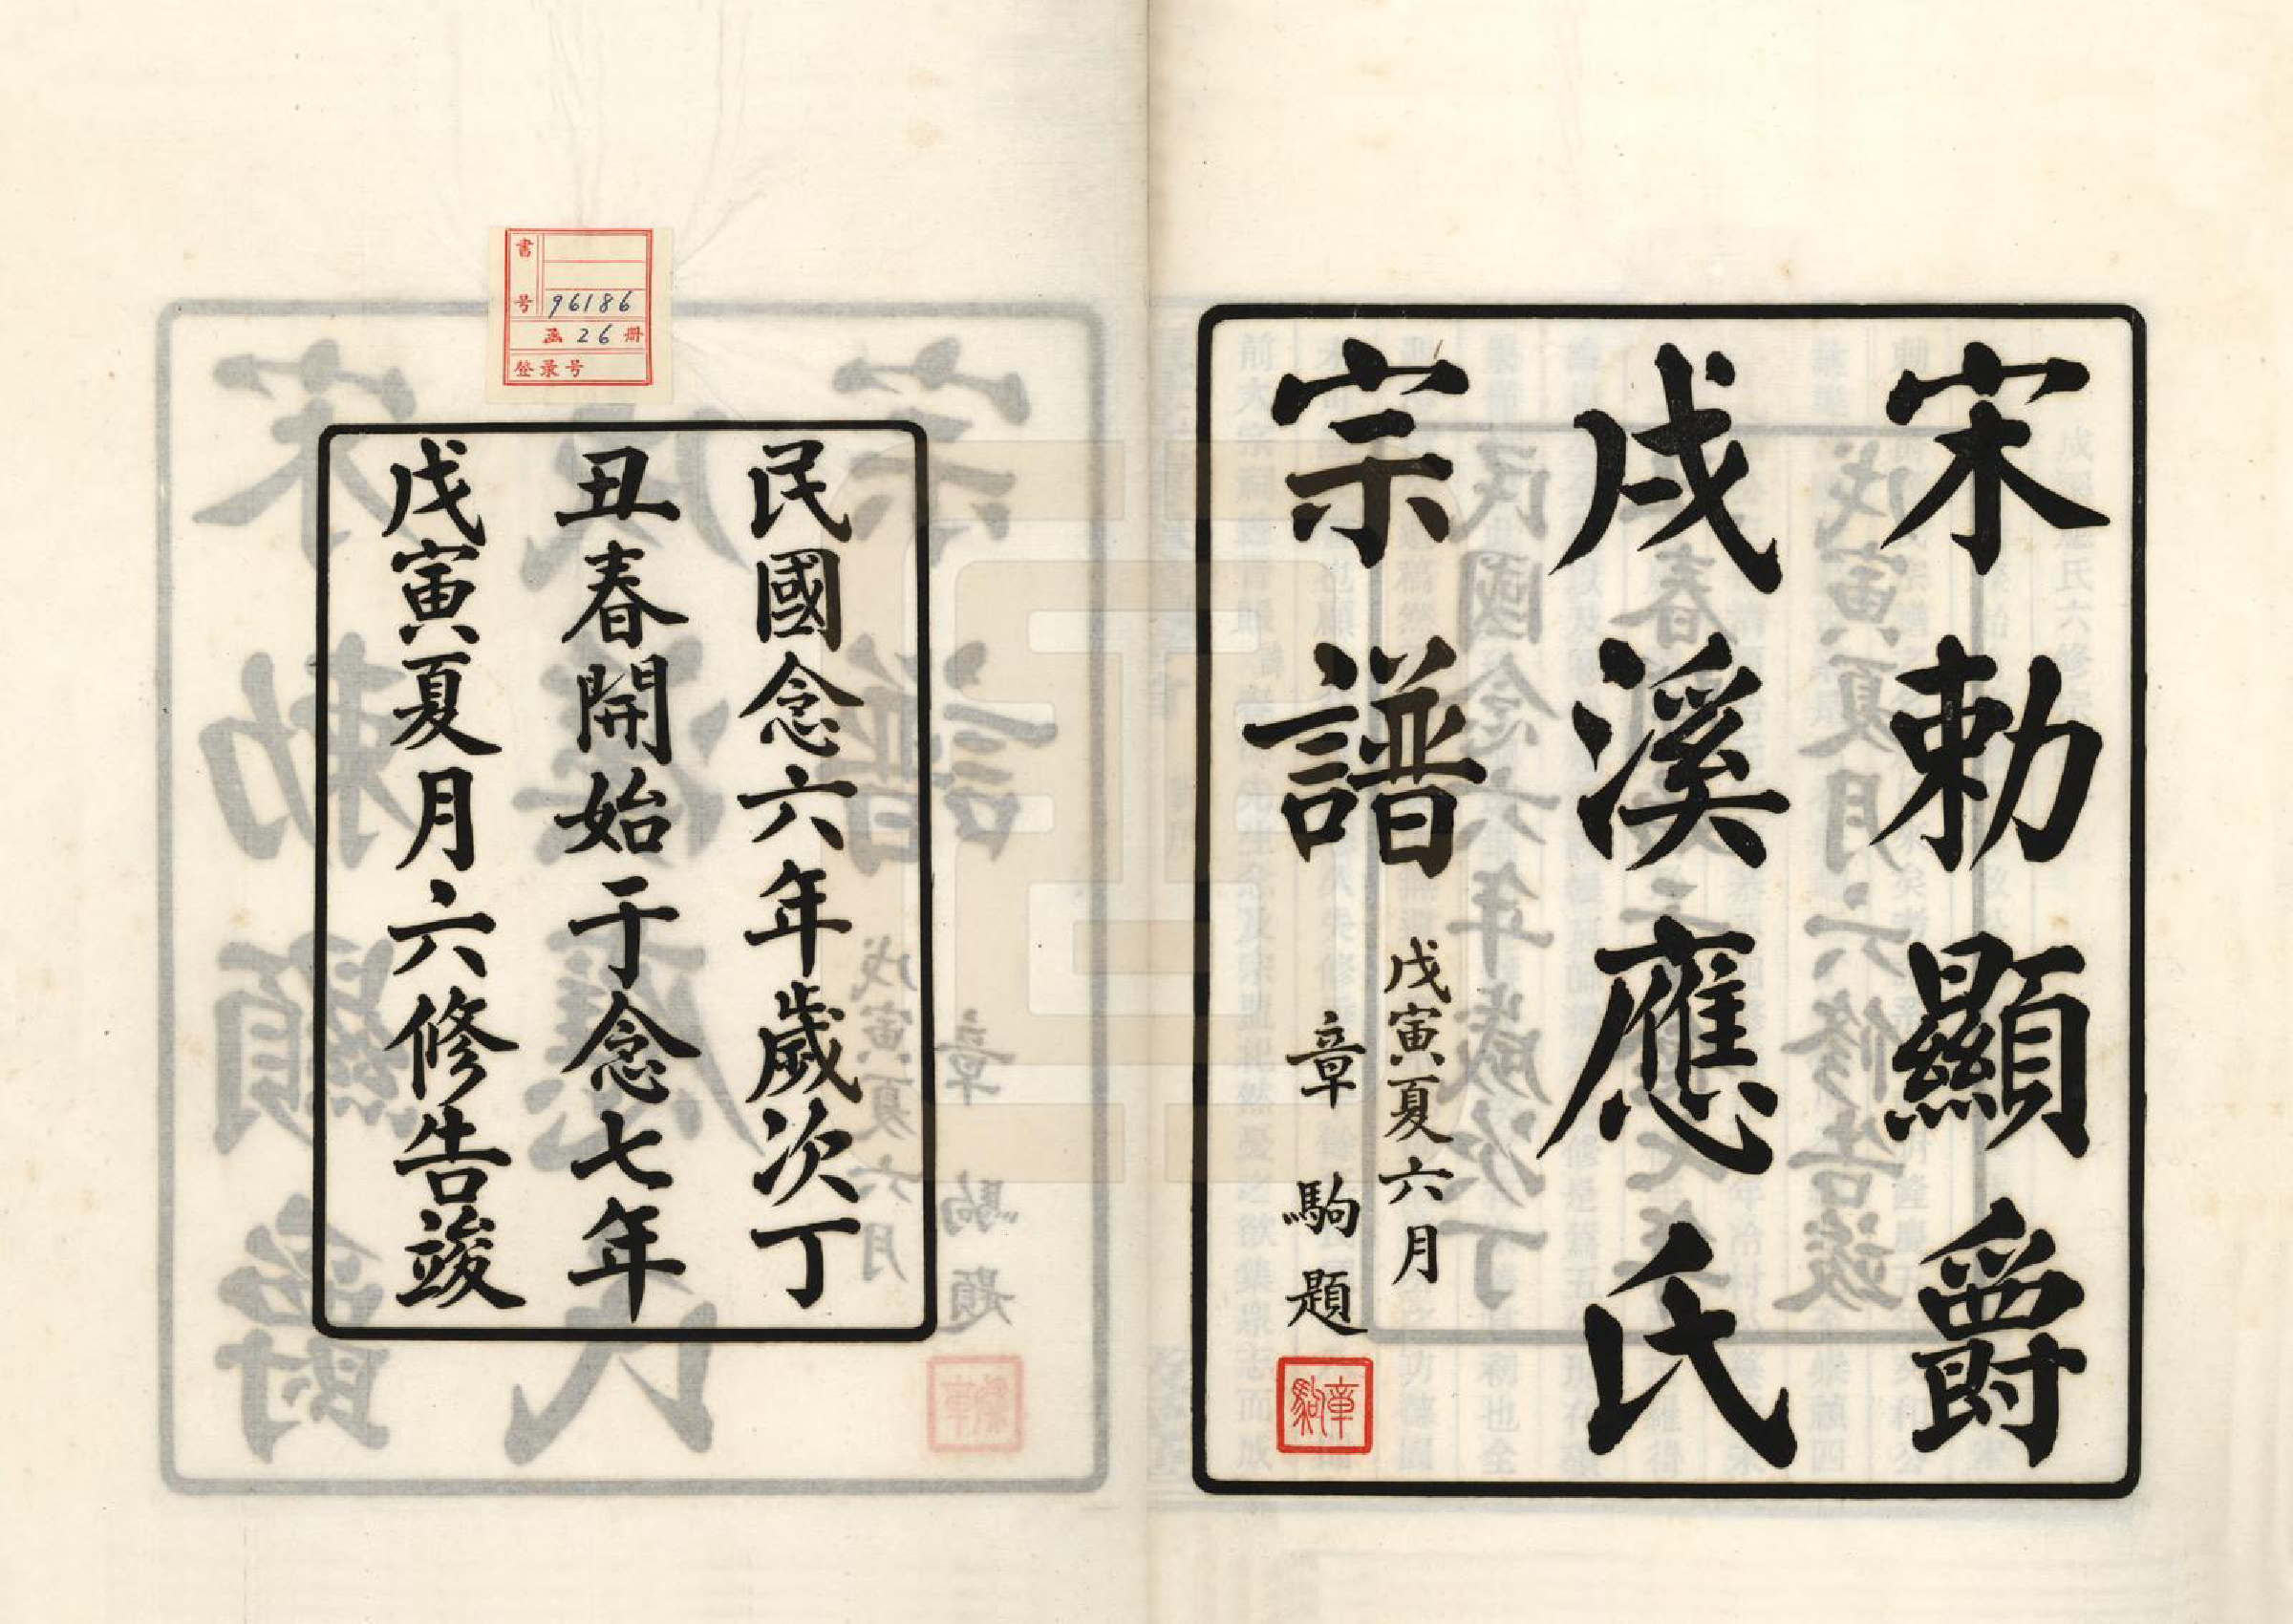 宋勅顯爵
戌溪應氏
宗譜
戊寅夏六月
章駒題
章駒
民國念六年歲次丁
丑春開始于念七年
戊寅夏月六修告竣
書
号 96186
函 26 册
登录号